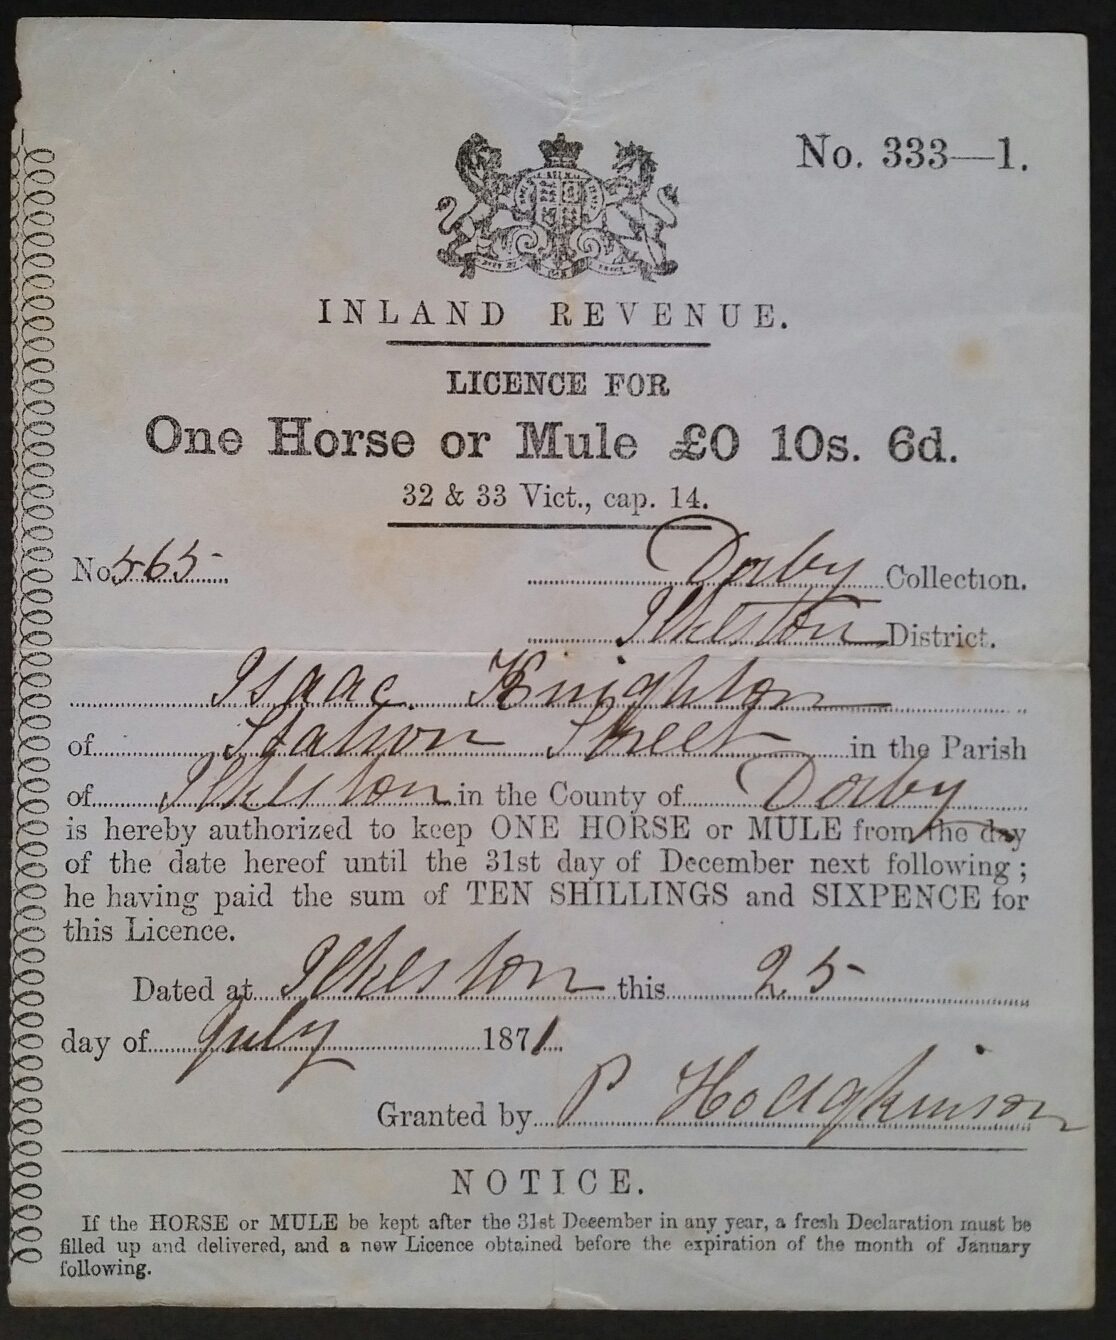 No. 333—1.
INLAND REVENUE.
LICENCE FOR
One Horse or Mule £0 10s. 6d.
32 & 33 Vict., cap. 14.
No 565
Derby Collection.
Ilkeston District.
Isaac Knighton
of Station Street in the Parish
of Ilkeston in the County of Derby
is hereby authorized to keep ONE HORSE or MULE from the day
of the date hereof until the 31st day of December next following;
he having paid the sum of TEN SHILLINGS and SIXPENCE for
this Licence.
Dated at Ilkeston this 25
day of July 1871
Granted by P Hodgkinson
NOTICE.
If the HORSE or MULE be kept after the 31st December in any year, a fresh Declaration must be
filled up and delivered, and a new Licence obtained before the expiration of the month of January
following.